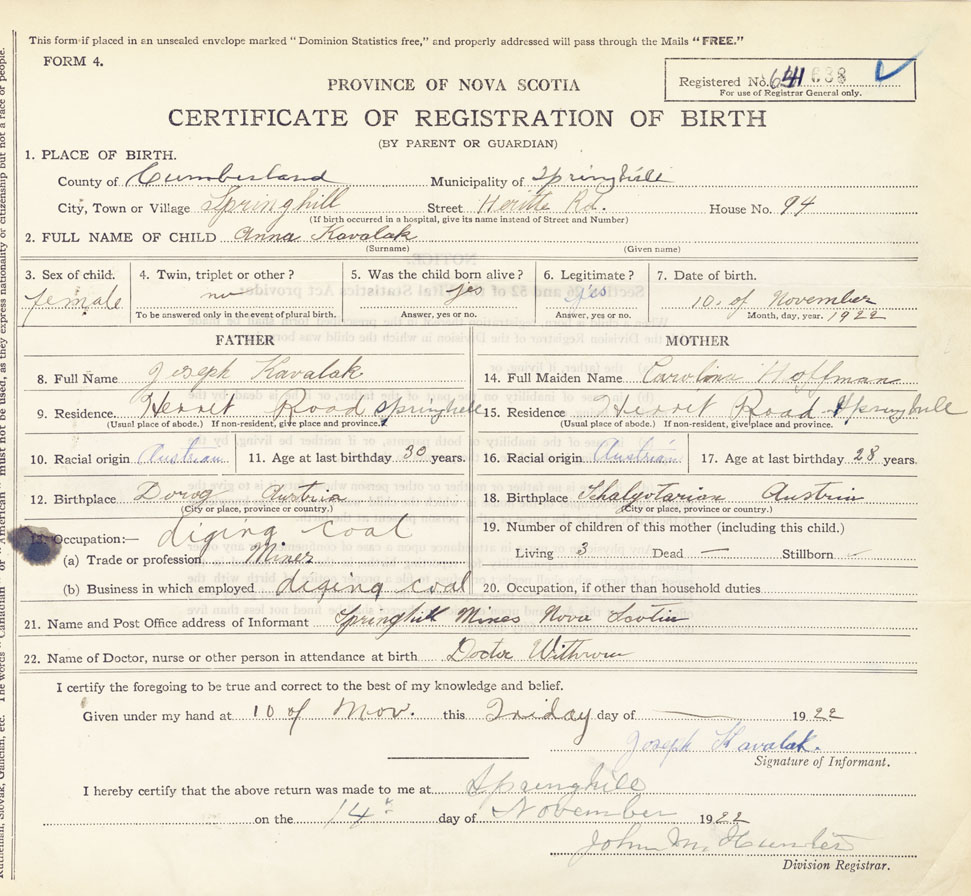 This form if placed in an unsealed envelope marked "Dominion Statistics free," and properly addressed will pass through the Mails "FREE."
FORM 4.
Registered No. 641 638
For use of Registrar General only.
PROVINCE OF NOVA SCOTIA
CERTIFICATE OF REGISTRATION OF BIRTH
(BY PARENT OR GUARDIAN)
1. PLACE OF BIRTH.
County of Cumberland Municipality of Springhill
City, Town or Village Springhill Street Heritte Rd. House No. 94
(If birth occurred in a hospital, give its name instead of Street and Number)
2. FULL NAME OF CHILD Anna Kavalak
(Surname) (Given name)
3. Sex of child. 4. Twin, triplet or other? 5. Was the child born alive? 6. Legitimate? 7. Date of birth.
female no yes yes 10. of November
To be answered only in the event of plural birth. Answer, yes or no. Answer, yes or no. Month, day, year. 1922
FATHER MOTHER
8. Full Name Joseph Kavalak 14. Full Maiden Name Carolina Hoffman
9. Residence. Herrit Road Springhill 15. Residence Herrit Road Springhill
(Usual place of abode.) If non-resident, give place and province. (Usual place of abode.) If non-resident, give place and province.
10. Racial origin Austrian 11. Age at last birthday 30 years. 16. Racial origin Austrian 17. Age at last birthday 28 years.
12. Birthplace Dorog Austria 18. Birthplace Shalgotarian Austria
(City or place, province or country.) (City or place, province or country.)
13. Occupation:— diging coal 19. Number of children of this mother (including this child.)
(a) Trade or profession Miner Living 3 Dead — Stillborn —
(b) Business in which employed diging coal 20. Occupation, if other than household duties
21. Name and Post Office address of Informant Springhill Mines Nova Scotia
22. Name of Doctor, nurse or other person in attendance at birth Doctor Withrow
I certify the foregoing to be true and correct to the best of my knowledge and belief.
Given under my hand at 10 of Nov. this Friday day of — 1922
Joseph Kavalak.
Signature of Informant.
I hereby certify that the above return was made to me at Springhill
on the 14th day of November 1922
John M. Hunter
Division Registrar.